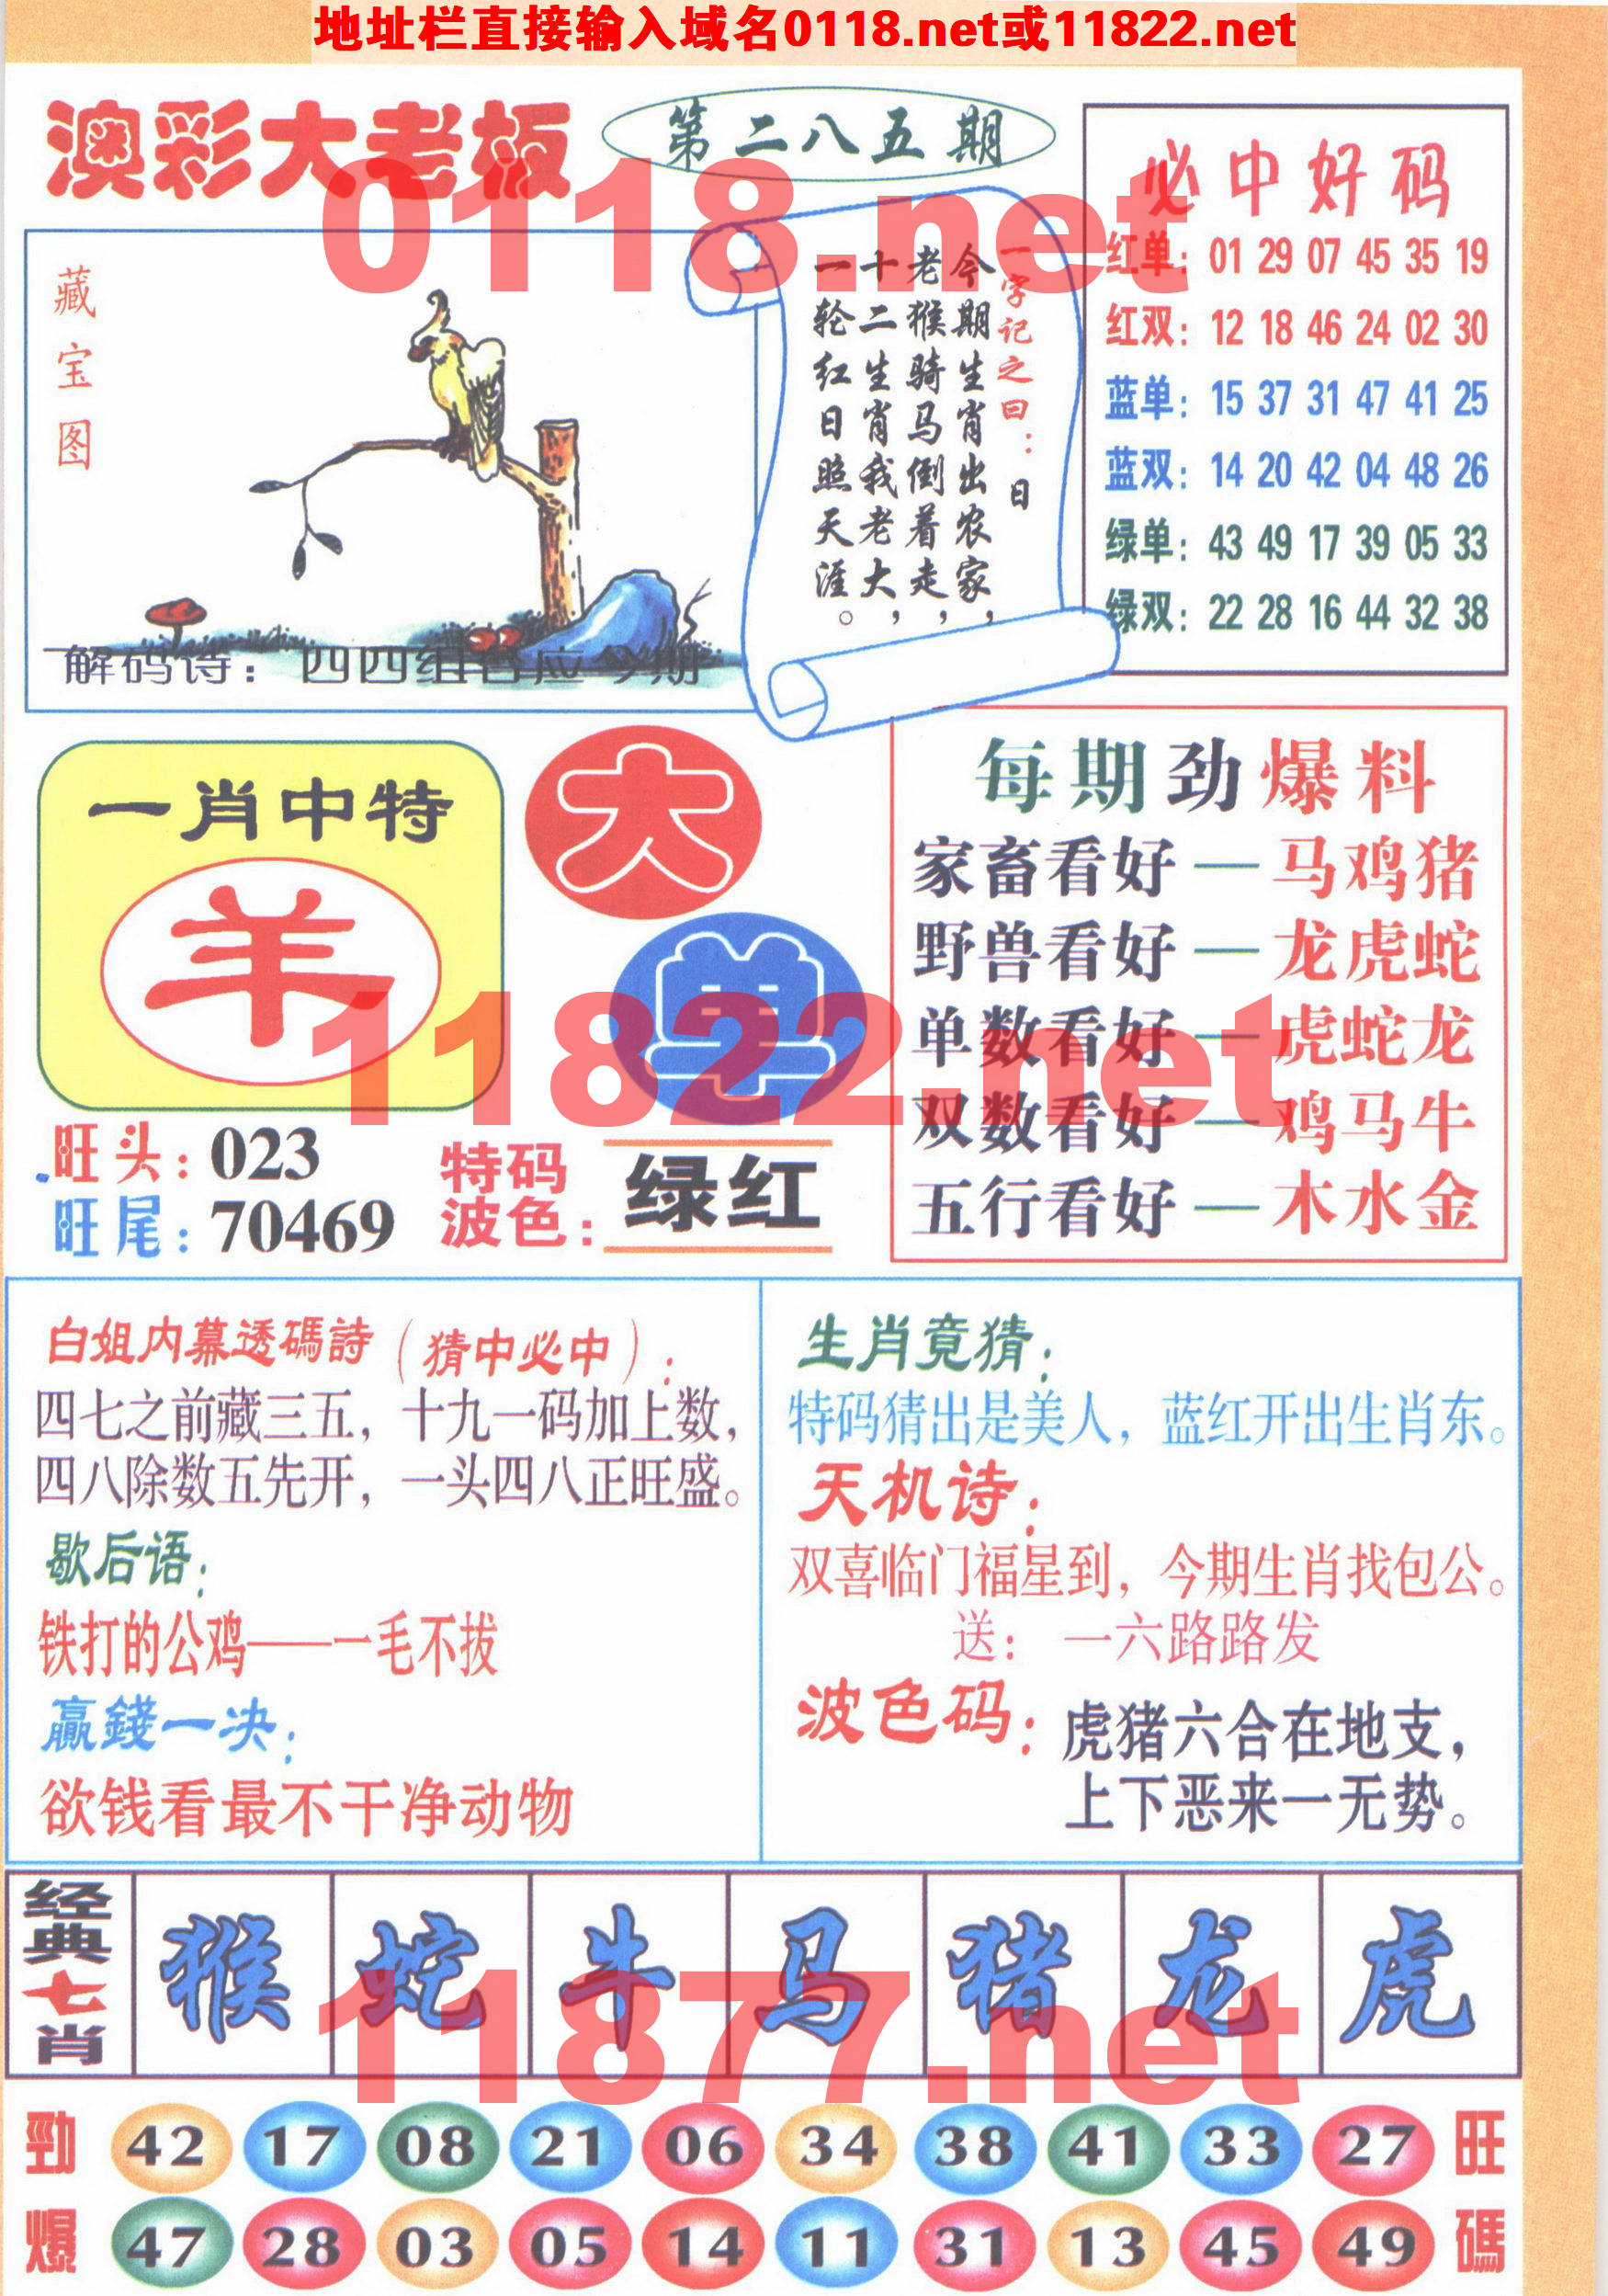 地址栏直接输入域名0118.net或11822.net
澳彩大老板
第二八五期
0118.net
藏宝图
解码诗：四四组合应今期
一字记之曰：日
今期生肖出农家，
老猴骑马倒着走，
十二生肖我老大，
一轮红日照天涯。
必中好码
红单：01 29 07 45 35 19
红双：12 18 46 24 02 30
蓝单：15 37 31 47 41 25
蓝双：14 20 42 04 48 26
绿单：43 49 17 39 05 33
绿双：22 28 16 44 32 38
一肖中特
羊
大
单
旺头：023
旺尾：70469
特码波色：绿红
每期劲爆料
家畜看好—马鸡猪
野兽看好—龙虎蛇
单数看好—虎蛇龙
双数看好—鸡马牛
五行看好—木水金
11822.net
白姐内幕透碼詩（猜中必中）：
四七之前藏三五，十九一码加上数，
四八除数五先开，一头四八正旺盛。
歇后语：
铁打的公鸡——一毛不拔
赢錢一决：
欲钱看最不干净动物
生肖竟猜：
特码猜出是美人，蓝红开出生肖东。
天机诗：
双喜临门福星到，今期生肖找包公。
送：一六路路发
波色码：虎猪六合在地支，
上下恶来一无势。
经典七肖
猴 蛇 牛 马 猪 龙 虎
11877.net
勁 42 17 08 21 06 34 38 41 33 27 旺
爆 47 28 03 05 14 11 31 13 45 49 碼